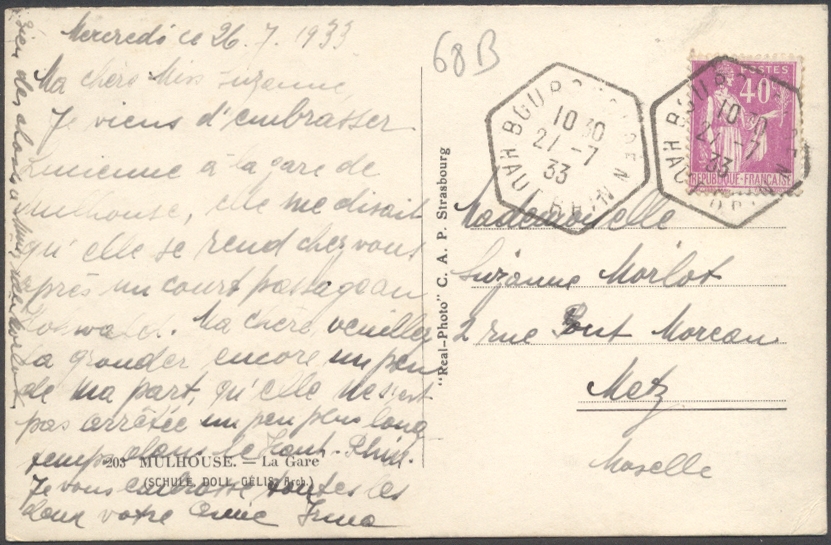 Mercredi ce 26.7.1933
Ma chère Miss Suzanne,
Je viens d'embrasser
Lucienne à la gare de
Mulhouse, elle me disait
qu'elle se rend chez vous
après un court passage au
Ma chère veuillez
la gronder encore un peu
de ma part, qu'elle ne s'est
pas arrêtée un peu plus long
temps dans le Haut-Rhin.
Je vous embrasse toutes les
deux votre amie Irma
Bien des choses à
203 MULHOUSE. — La Gare
(SCHULÉ, DOLL, GÉLIS, Arch.)
"Real-Photo" C. A. P. Strasbourg
68 B
10 30
21 -7
33
HAUT RHIN
POSTES
40
REPUBLIQUE-FRANÇAISE
10 30
21 -7
33
Mademoiselle
Suzanne Morlot
2 rue Pont Moreau
Metz
Moselle